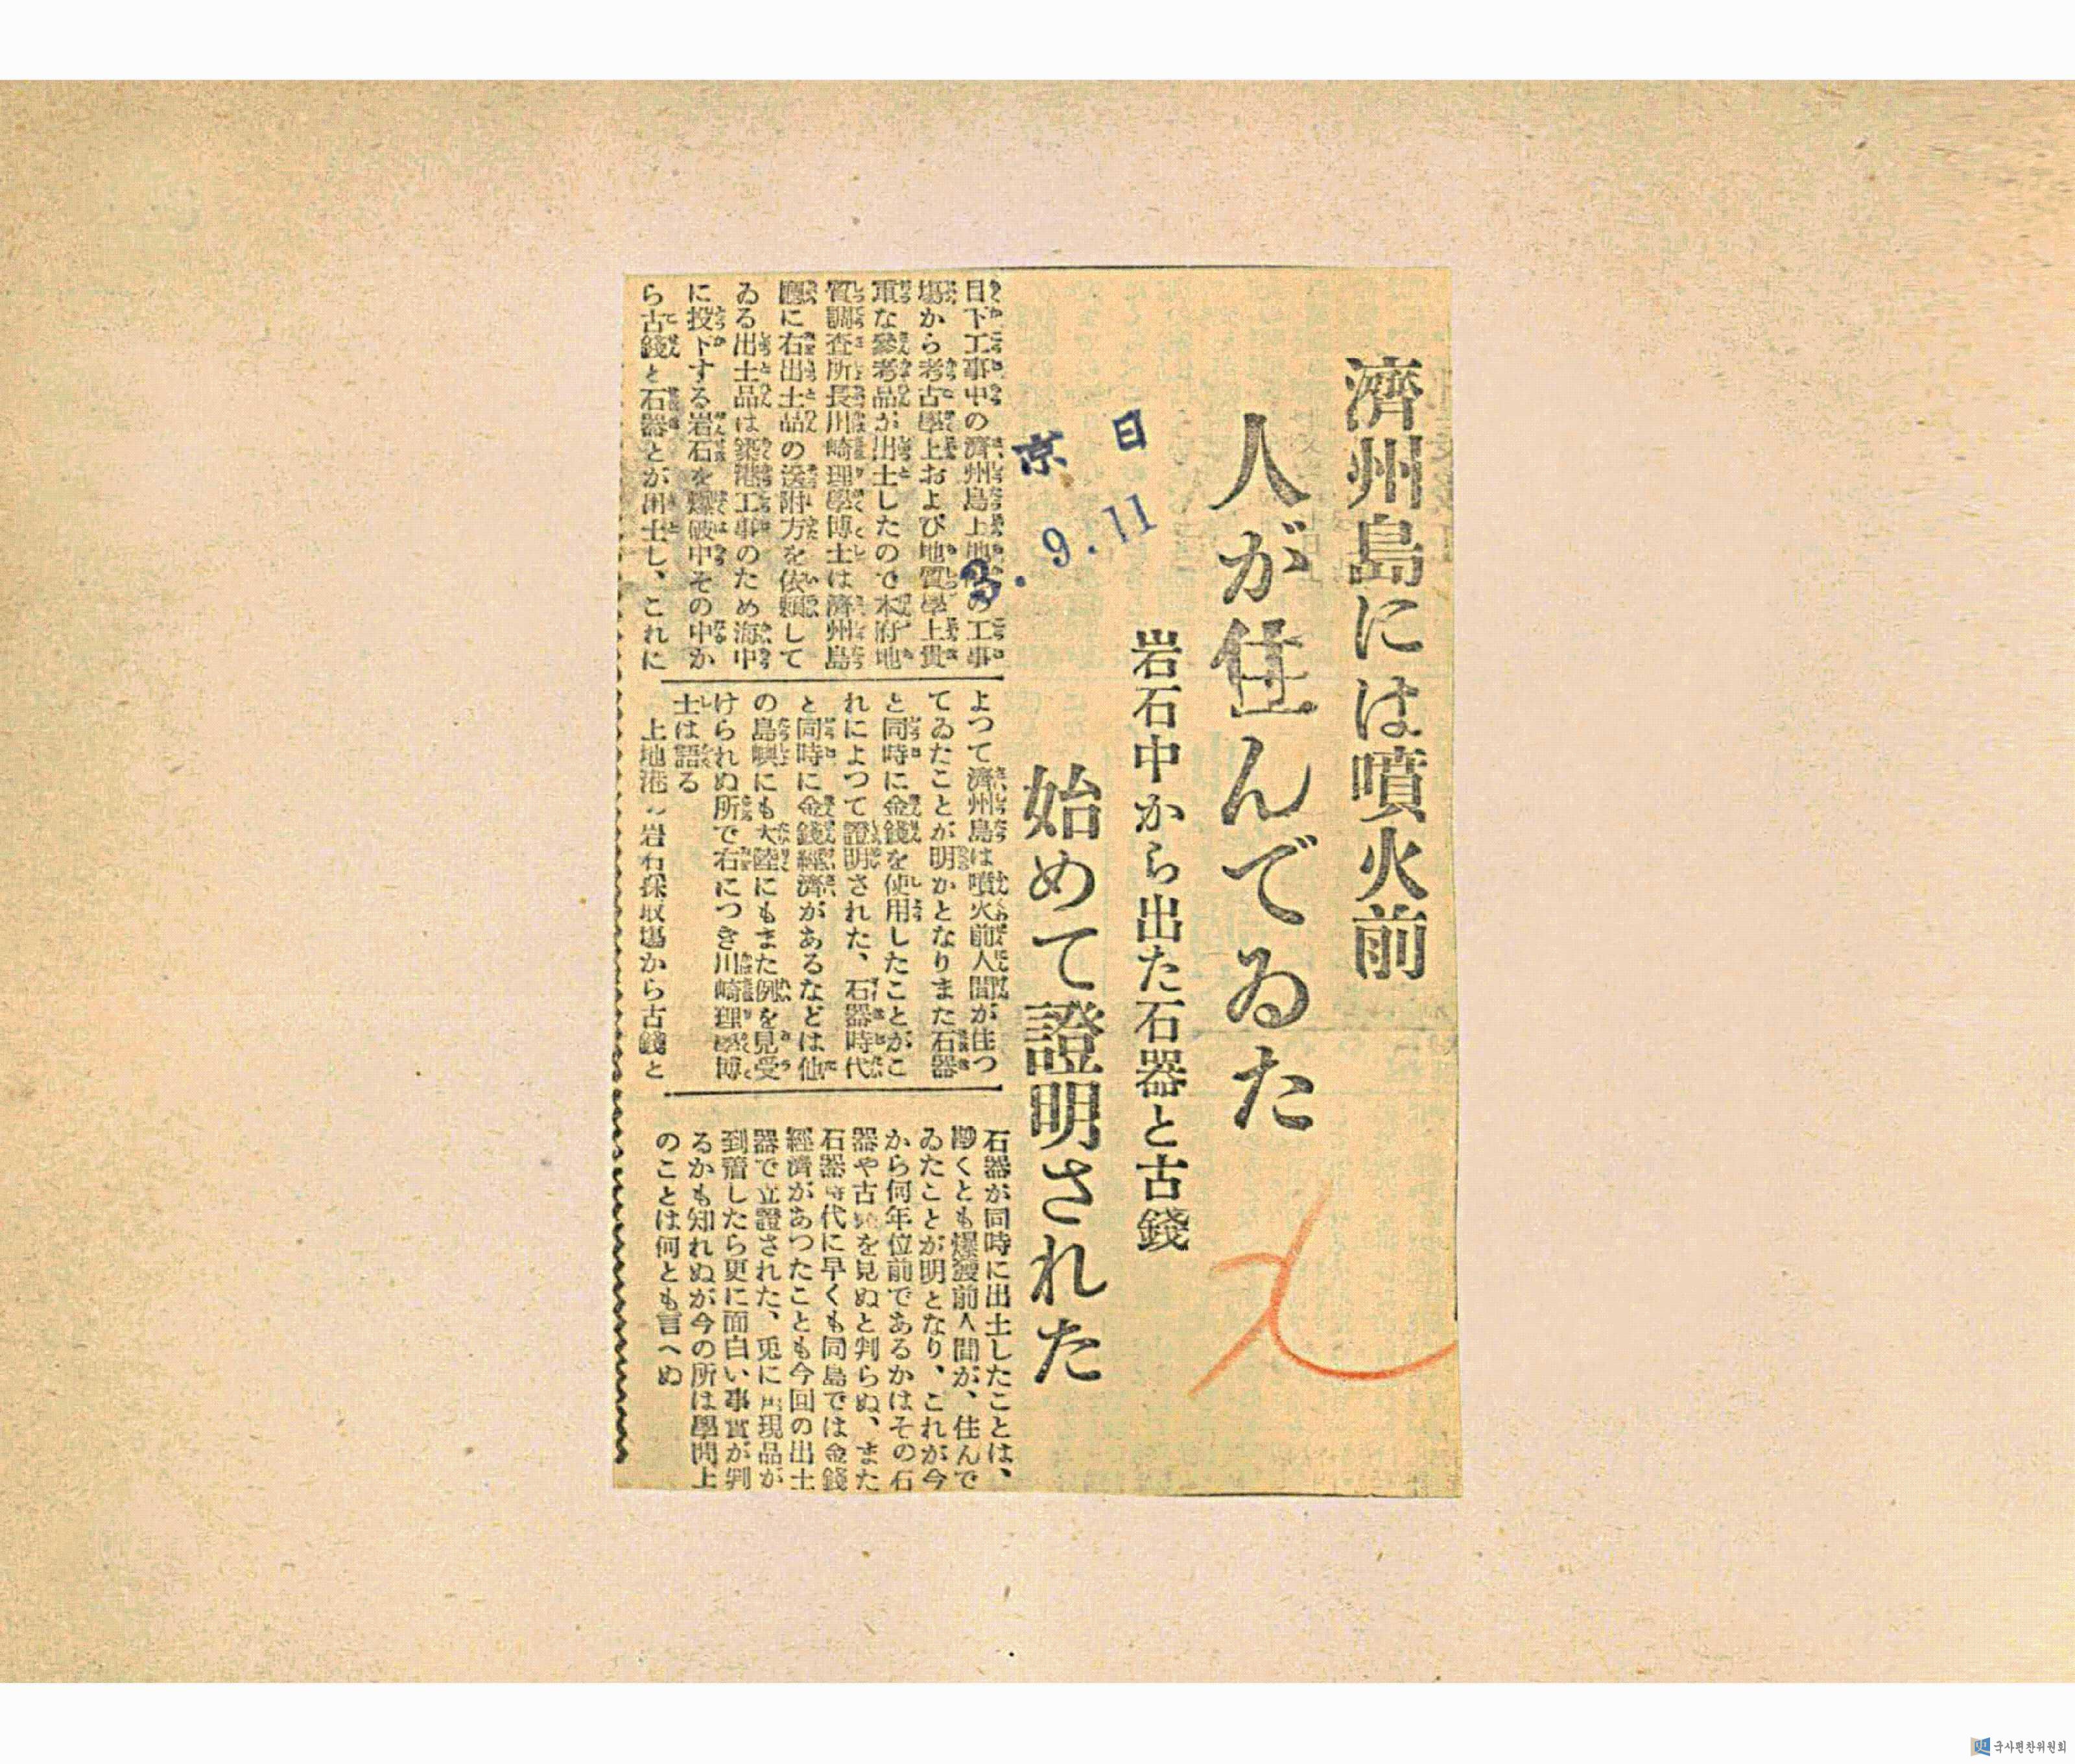 濟州島には噴火前
人が住んでゐた
岩石中から出た石器と古錢
始めて證明された
日 京
3.9.11
目下工事中の濟州島上地港の工事
場から考古學上および地質學上貴
重な參考品が出土したので本府地
質調査所長川崎理學博士は濟州島
廳に右出土品の送附方を依頼して
ゐる出土品は築港工事のため海中
に投下する岩石を爆破中その中か
ら古錢と石器とが出土し、これに
よつて濟州島は噴火前人間が住つ
てゐたことが明かとなりまた石器
と同時に金錢を使用したことがこ
れによつて證明された、石器時代
と同時に金錢經濟があるなどは他
の島嶼にも大陸にもまた例を見受
けられぬ所で右につき川崎理學博
士は語る
上地港の岩石採取場から古錢と
石器が同時に出土したことは、
尠くとも爆發前人間が、住んで
ゐたことが明となり、これが今
から何年位前であるかはその石
器や古錢を見ぬと判らぬ、また
石器時代に早くも同島では金錢
經濟があつたことも今回の出土
器で立證された、兎に角現品が
到着したら更に面白い事實が判
るかも知れぬが今の所は學問上
のことは何とも言へぬ
국사편찬위원회